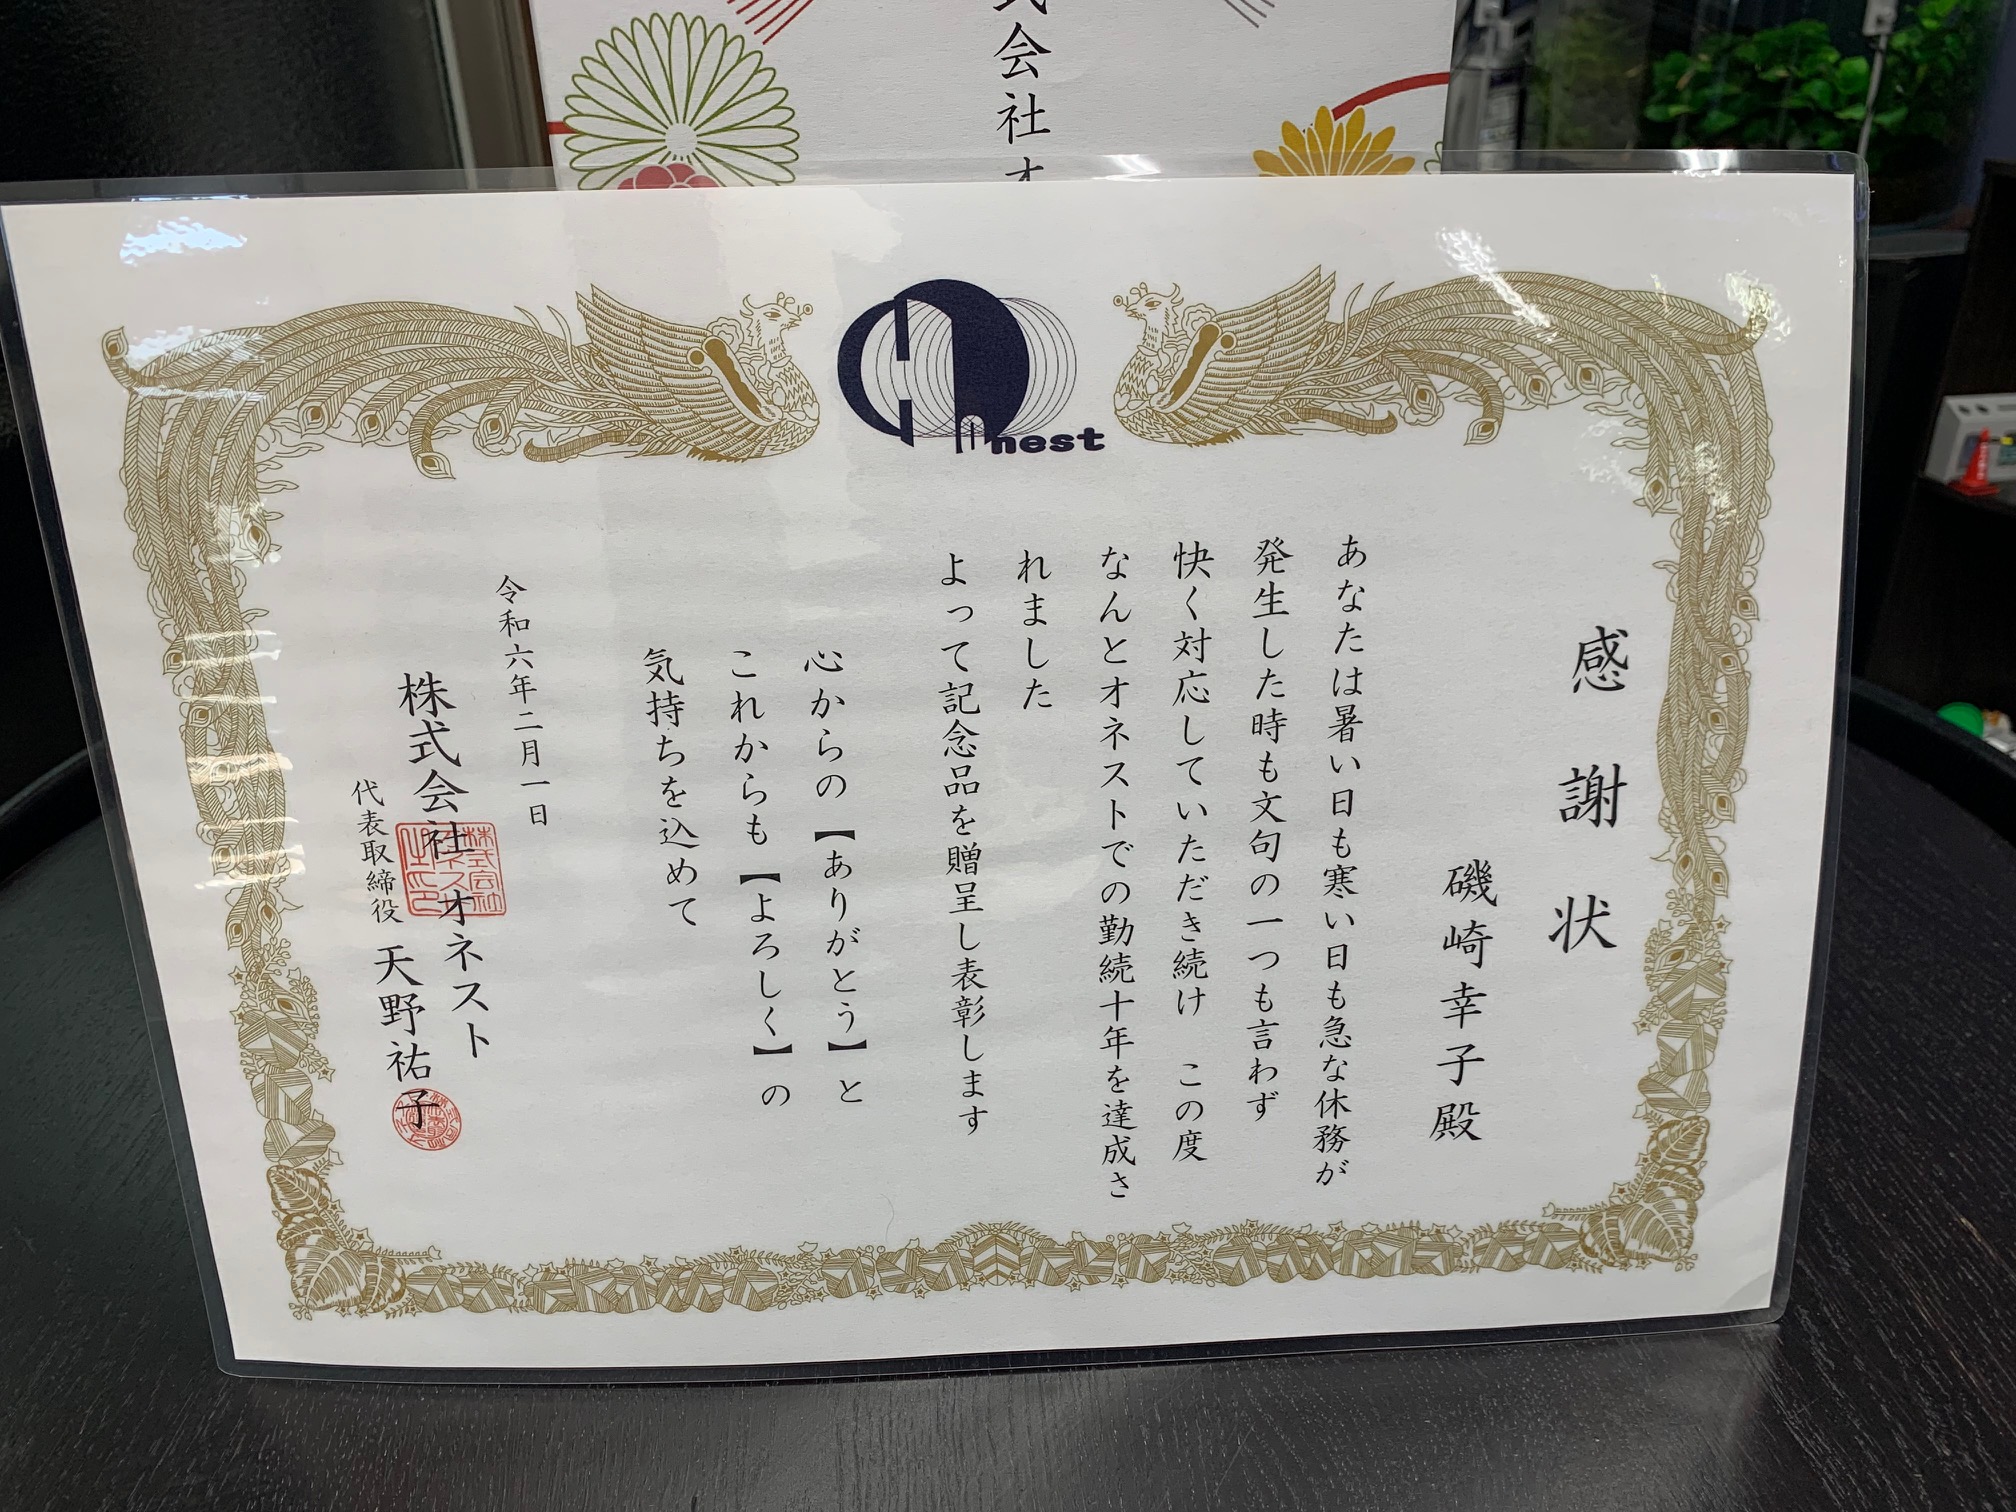 式会社オ
nest
感謝状
磯崎幸子殿
あなたは暑い日も寒い日も急な休務が
発生した時も文句の一つも言わず
快く対応していただき続け この度
なんとオネストでの勤続十年を達成さ
れました
よって記念品を贈呈し表彰します
心からの【ありがとう】と
これからも【よろしく】の
気持ちを込めて
令和六年二月一日
株式会社オネスト
代表取締役 天野祐子